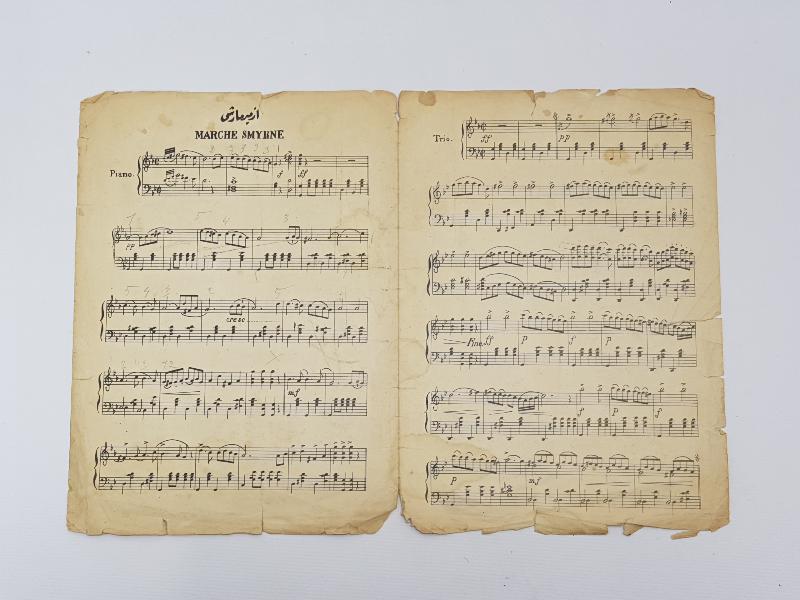 ازمیر مارشی
MARCHE SMYRNE
Piano.
f ff
pp
cresc........
mf
Trio.
ff pp
Fine. ff p f p
f p f
p mf